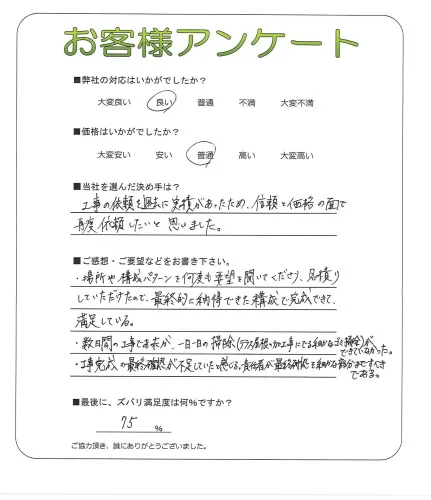 お客様アンケート
■弊社の対応はいかがでしたか?
大変良い 良い 普通 不満 大変不満
■価格はいかがでしたか?
大変安い 安い 普通 高い 大変高い
■当社を選んだ決め手は?
工事の依頼を過去に実績があったため、信頼と価格の面で
再度依頼したいと思いました。
■ご感想・ご要望などをお書き下さい。
・場所や構成パターンを何度も要望を聞いてくださり、見積り
していただけたので、最終的に納得できた構成で完成できて、
満足している。
・数日間の工事であれが、一日一日の掃除(テラス屋根の加工事にでる細かなゴミ掃除)が
できていなかった。
・工事完成の最終確認が不足していたと感じる。責任者が最終確認を細かな部分まですべき
である。
■最後に、ズバリ満足度は何%ですか?
75 %
ご協力頂き、誠にありがとうございました。